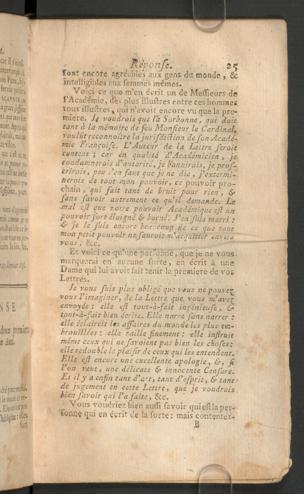 Réponse. 25
sont encore agréables aux gens du monde, &
intelligibles aux femmes mêmes.
Voici ce que m'en écrit un de Messieurs de
l'Académie, des plus illustres entre ces hommes
tous illustres, qui n'avoit encore vu que la pre-
miere. Je voudrois que la Sorbonne, qui doit
tant à la mémoire de feu Monsieur le Cardinal,
voulût reconnoître la jurisdiction de son Acadé-
mie Françoise. L'Auteur de la Lettre seroit
content ; car en qualité d'Académicien, je
condamnerois d'autorité, je bannirois, je pros-
crirois, peu s'en faut que je ne die, j'extermi-
nerois de tout mon pouvoir, ce pouvoir pro-
chain, qui fait tant de bruit pour rien, &
sans savoir autrement ce qu'il demande. Le
mal est que notre pouvoir Académique est un
pouvoir fort éloigné & borné: J'en suis marri :
& je le suis encore beaucoup de ce que tout
mon petit pouvoir ne sauroit m'acquitter envers
vous, &c.
Et voici ce qu'une personne, que je ne vous
marquerai en aucune sorte, en écrit à une
Dame qui lui avoit fait tenir la premiere de vos
Lettres.
Je vous suis plus obligé que vous ne pouvez
vous l'imaginer, de la Lettre que vous m'avez
envoyée : elle est tout-à-fait ingénieuse, &
tout-à-fait bien écrite. Elle narre sans narrer :
elle éclaircit les affaires du monde les plus em-
brouillées : elle raille finement: elle instruit
même ceux qui ne savoient pas bien les choses:
elle redouble le plaisir de ceux qui les entendent.
Elle est encore une excellente apologie, &, si
l'on veut, une délicate & innocente Censure.
Et il y a enfin tant d'art, tant d'esprit, & tant
de jugement en cette Lettre, que je voudrois
bien savoir qui l'a faite, &c.
Vous voudriez bien aussi savoir qui est la per-
sonne qui en écrit de la sorte: mais contentez-
B